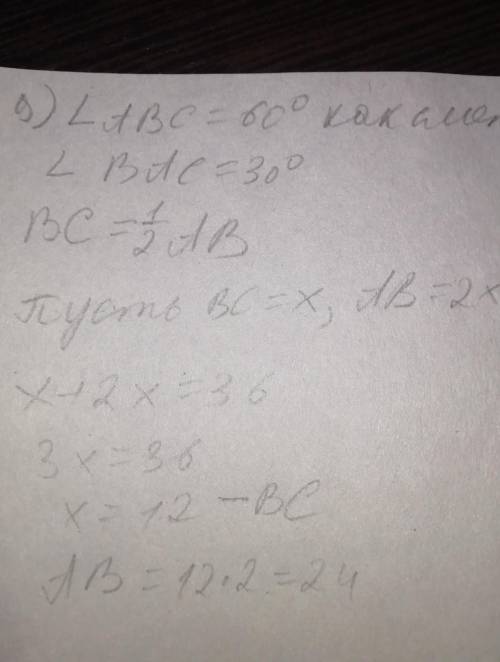 ∠ABC=60° как смеж
∠BAC=30°
BC=1/2 AB
Пусть BC=x, AB=2x
x+2x=36
3x=36
x=12 - BC
AB=12·2=24